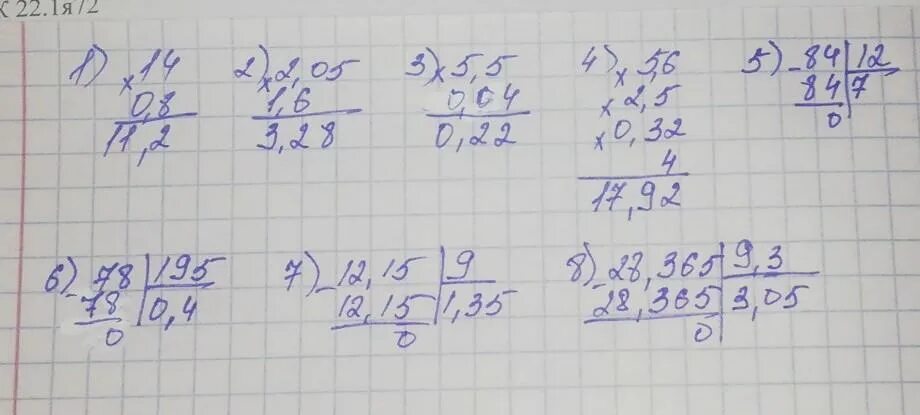 К 22.1я72
1) × 14
0,8
11,2
2) × 2,05
1,6
3,28
3) × 5,5
0,04
0,22
4) × 5,6
× 2,5
× 0,32
4
17,92
5) - 84 | 12
84 | 7
0
6) - 78 | 195
78 | 0,4
0
7) - 12,15 | 9
12,15 | 1,35
0
8) - 28,365 | 9,3
28,365 | 3,05
0